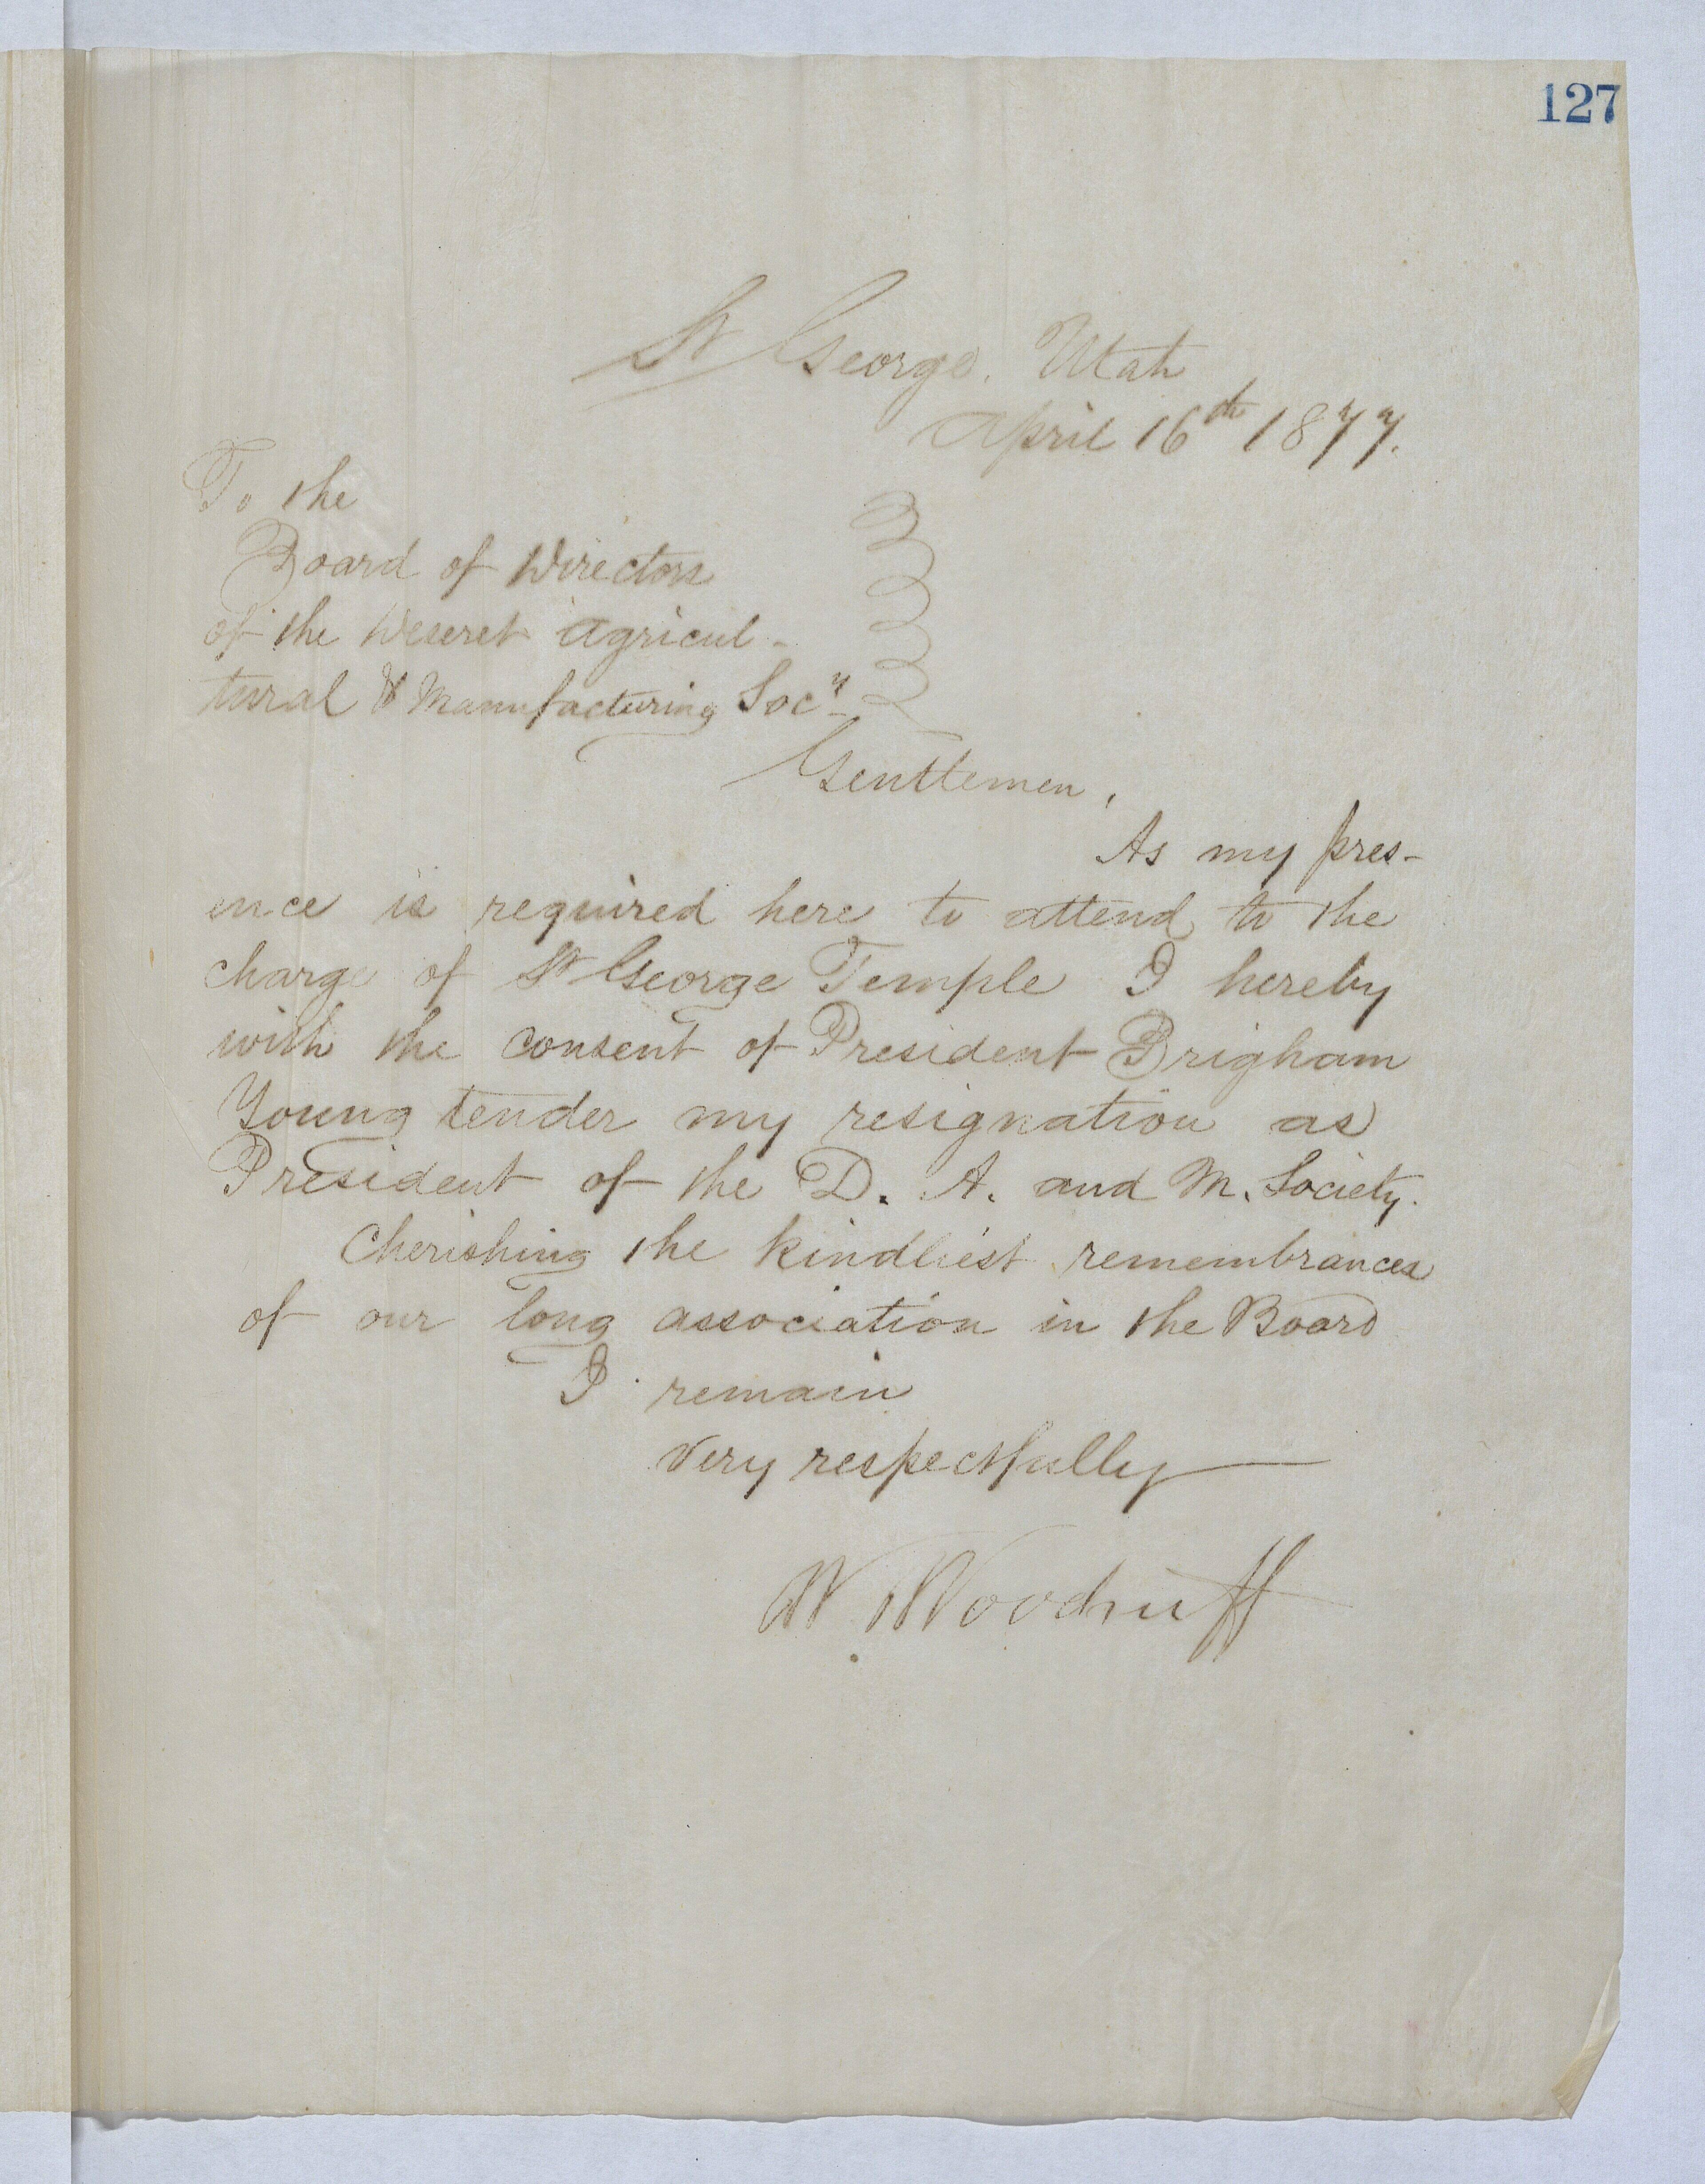 127
St George. Utah
April 16th 1877.
To the
Board of Directors
of the Deseret Agricul-
tural & Manufacturing Socy
Gentlemen,
As my pres-
ence is required here to attend to the
charge of St George Temple I hereby
with the consent of President Brigham
Young tender my resignation as
President of the D. A. and M. Society.
Cherishing the kindliest remembrances
of our long association in the Board
I remain
Very respectfully
W. Woodruff